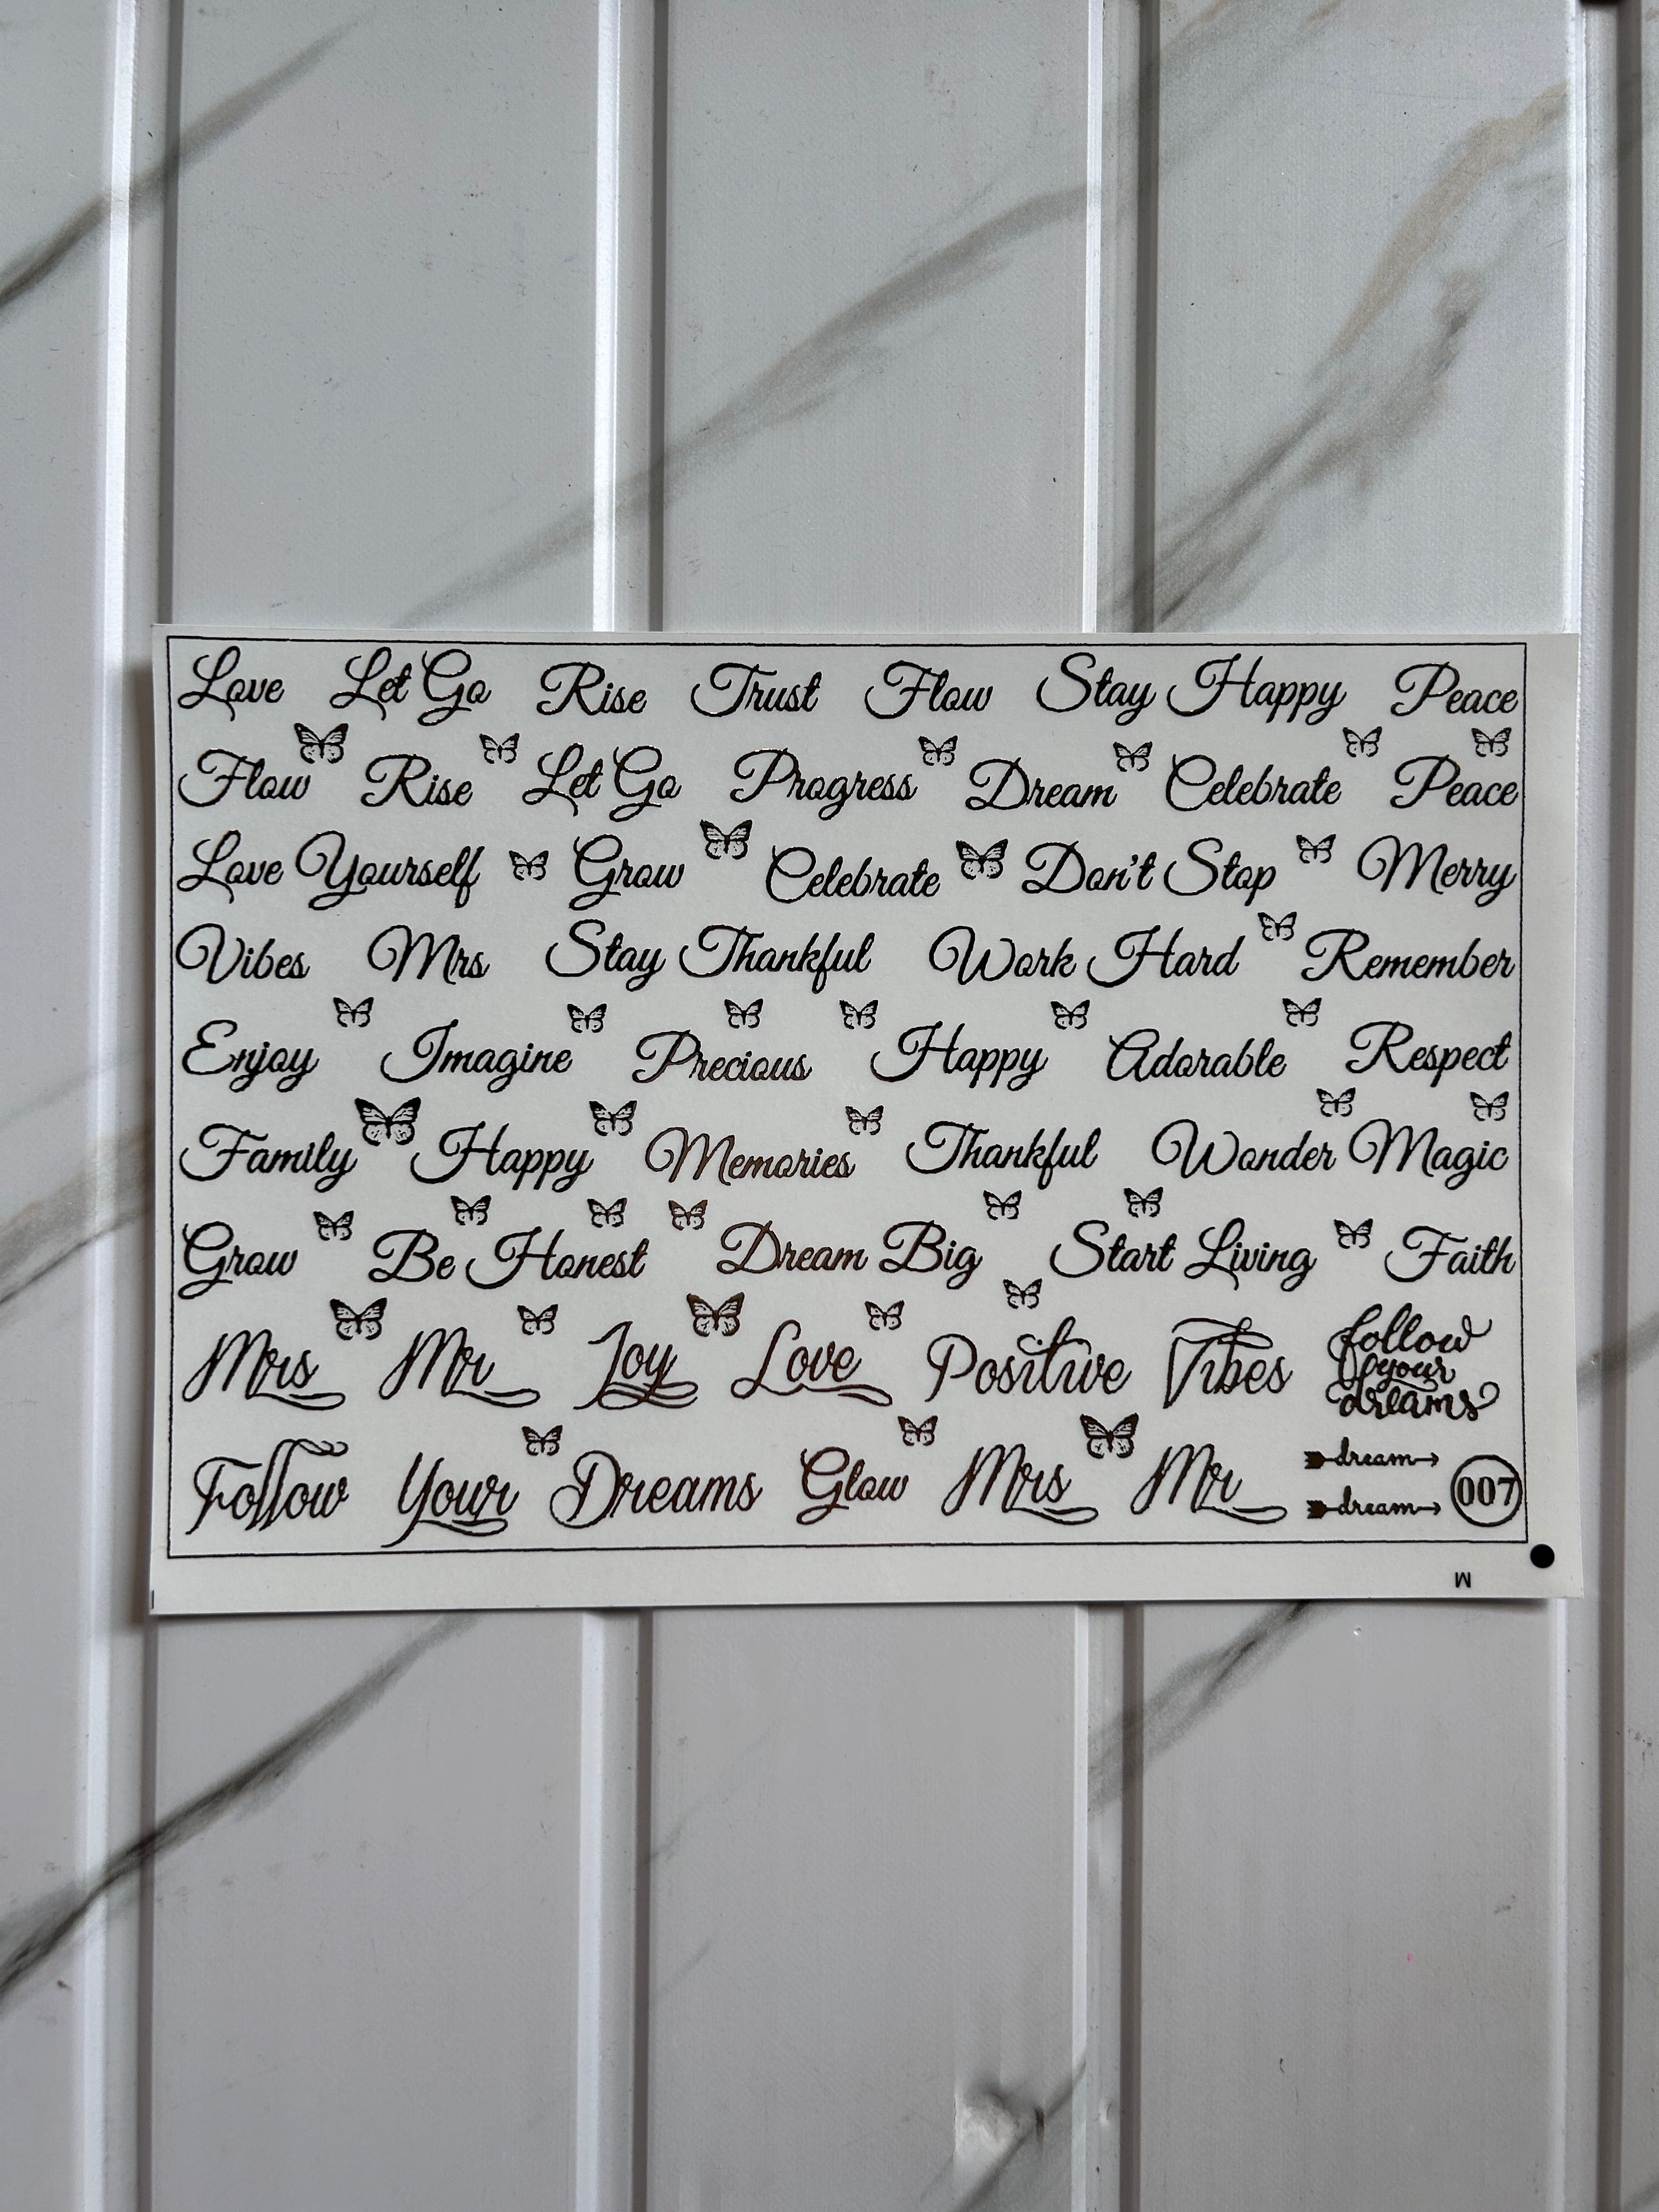 Love Let Go Rise Trust Flow Stay Happy Peace
Flow Rise Let Go Progress Dream Celebrate Peace
Love Yourself Grow Celebrate Don't Stop Merry
Vibes Mrs Stay Thankful Work Hard Remember
Enjoy Imagine Precious Happy Adorable Respect
Family Happy Memories Thankful Wonder Magic
Grow Be Honest Dream Big Start Living Faith
Mrs Mr Joy Love Positive Vibes
follow
your
dreams
Follow Your Dreams Glow Mrs Mr
dream
dream
007
M